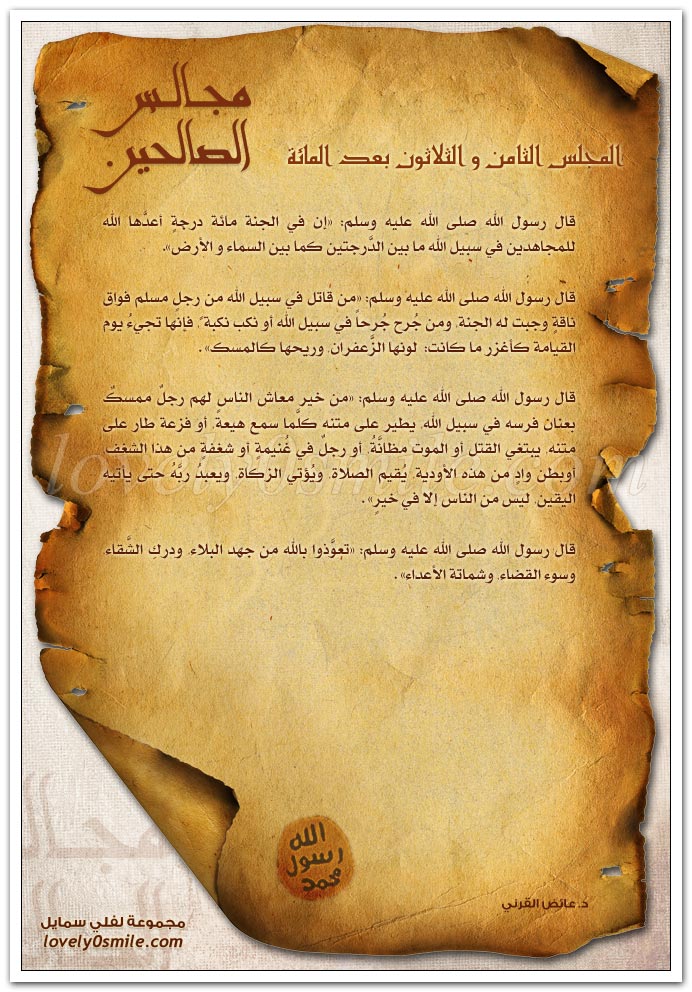 مجالس
الصالحين
المجلس الثامن و الثلاثون بعد المائة
قال رسول الله صلى الله عليه وسلم: «إن في الجنة مائة درجةٍ أعدَّها الله
للمجاهدين في سبيل الله ما بين الدَّرجتين كما بين السماء و الأرض».
قال رسول الله صلى الله عليه وسلم: «من قاتل في سبيل الله من رجلٍ مسلم فواق
ناقةٍ وجبت له الجنة، ومن جُرح جُرحاً في سبيل الله أو نكب نكبةً، فإنها تجيءُ يوم
القيامة كأغزر ما كانت: لونها الزَّعفران، وريحها كالمسك».
قال رسول الله صلى الله عليه وسلم: «من خير معاش الناس لهم رجلٌ ممسكٌ
بعنان فرسه في سبيل الله، يطير على متنه كلَّما سمع هيعة، أو فزعة طار على
متنه، يبتغي القتل أو الموت مظانَّهُ، أو رجلٌ في غُنيمةٍ أو شعَفةٍ من هذا الشعف،
أوبطن وادٍ من هذه الأودية، يُقيم الصلاة، ويُؤتي الزكاة، ويعبدُ ربَّهُ حتى يأتيه
اليقين، ليس من الناس إلا في خيرٍ».
قال رسول الله صلى الله عليه وسلم: «تعوَّذوا بالله من جهد البلاء، ودركِ الشَّقاء،
وسوء القضاء، وشماتة الأعداء».
lovely0smile.com
الله
رسول
محمد
د. عائض القرني
مجالس
مجموعة لفلي سمايل
lovely0smile.com